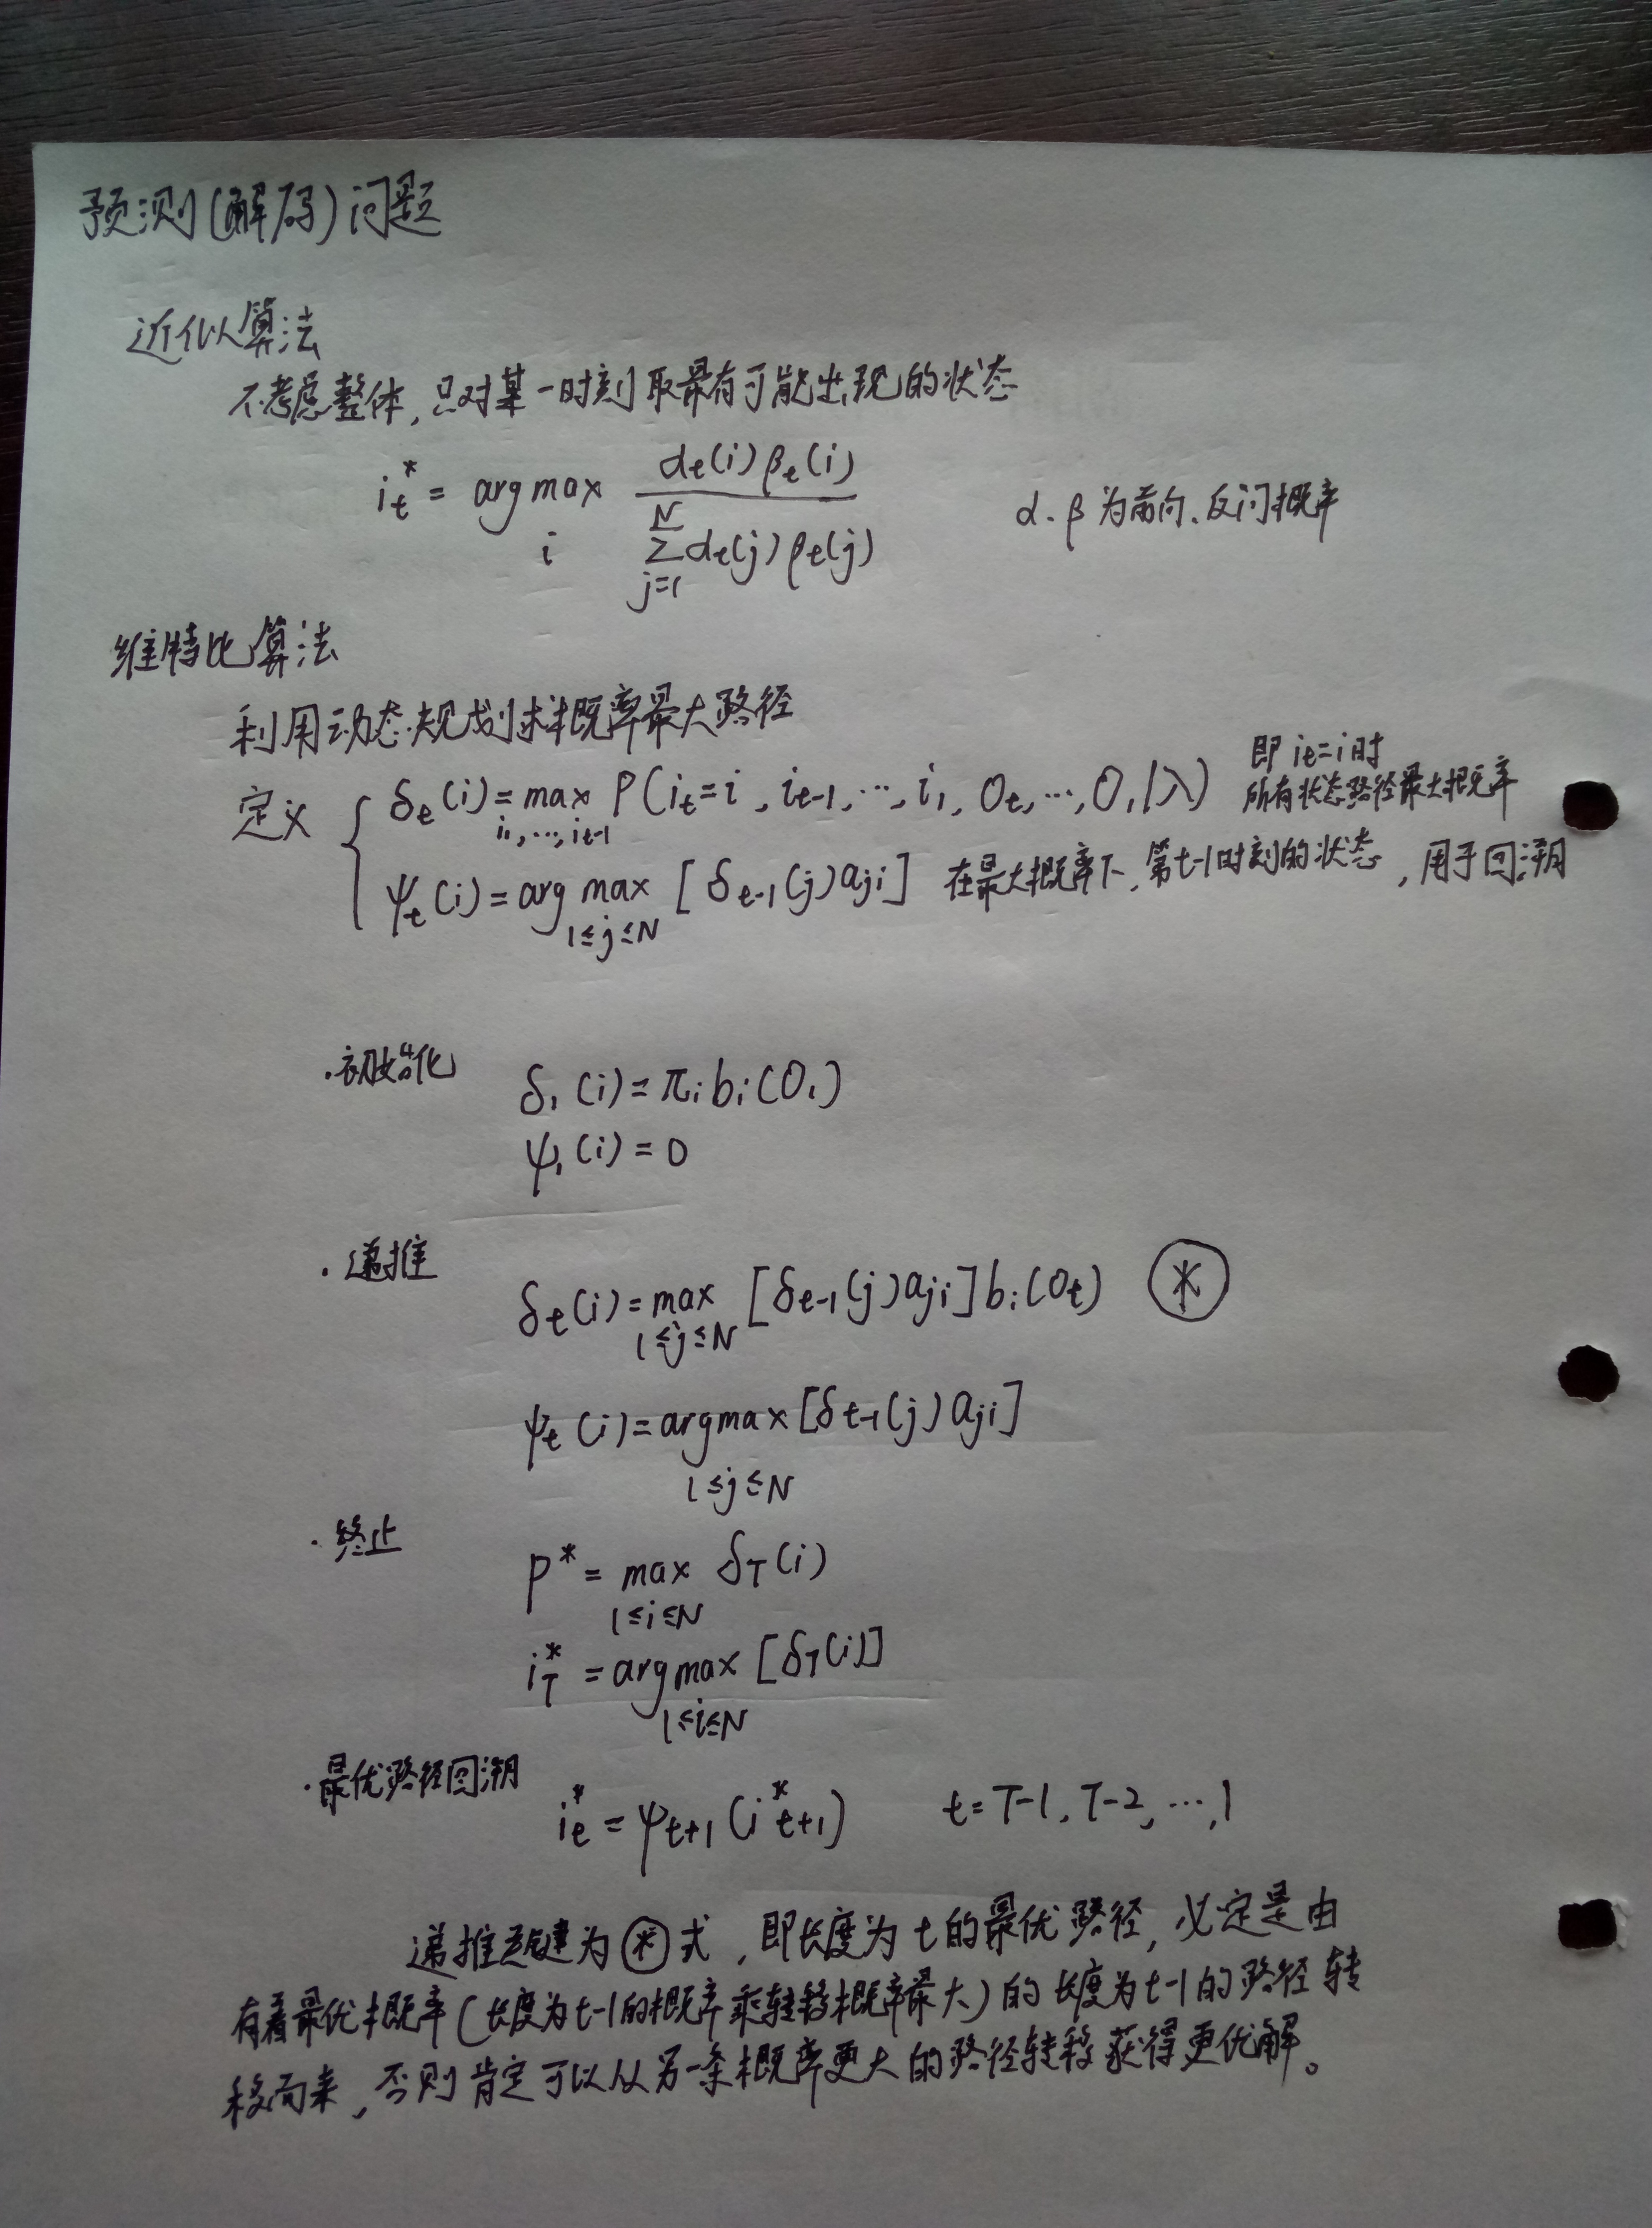 预测(解码)问题
近似算法
不考虑整体,只对某一时刻取最有可能出现的状态
i_t^* = argmax_i α_t(i)β_t(i) / Σ_{j=1}^N α_t(j)β_t(j)    α、β为前向、反向概率
维特比算法
利用动态规划求概率最大路径
定义 { δ_t(i) = max_{i_1,…,i_{t-1}} P(i_t=i, i_{t-1},…,i_1, O_t,…,O_1|λ)    即 i_t=i时
所有状态路径最大概率
ψ_t(i) = arg max_{1≤j≤N} [δ_{t-1}(j)a_{ji}]  在最大概率下,第t-1时刻的状态,用于回溯
·初始化    δ_1(i) = π_i b_i(O_1)
ψ_1(i) = 0
·递推    δ_t(i) = max_{1≤j≤N} [δ_{t-1}(j)a_{ji}] b_i(O_t)    ⊛
ψ_t(i) = argmax_{1≤j≤N} [δ_{t-1}(j)a_{ji}]
·终止    P^* = max_{1≤i≤N} δ_T(i)
i_T^* = argmax_{1≤i≤N} [δ_T(i)]
·最优路径回溯    i_t^* = ψ_{t+1}(i^*_{t+1})    t=T-1, T-2, …, 1
递推关键为⊛式,即长度为t的最优路径,必定是由
有着最优概率(长度为t-1的概率乘转移概率最大)的长度为t-1的路径转
移而来,否则肯定可以从另一条概率更大的路径转移获得更优解。